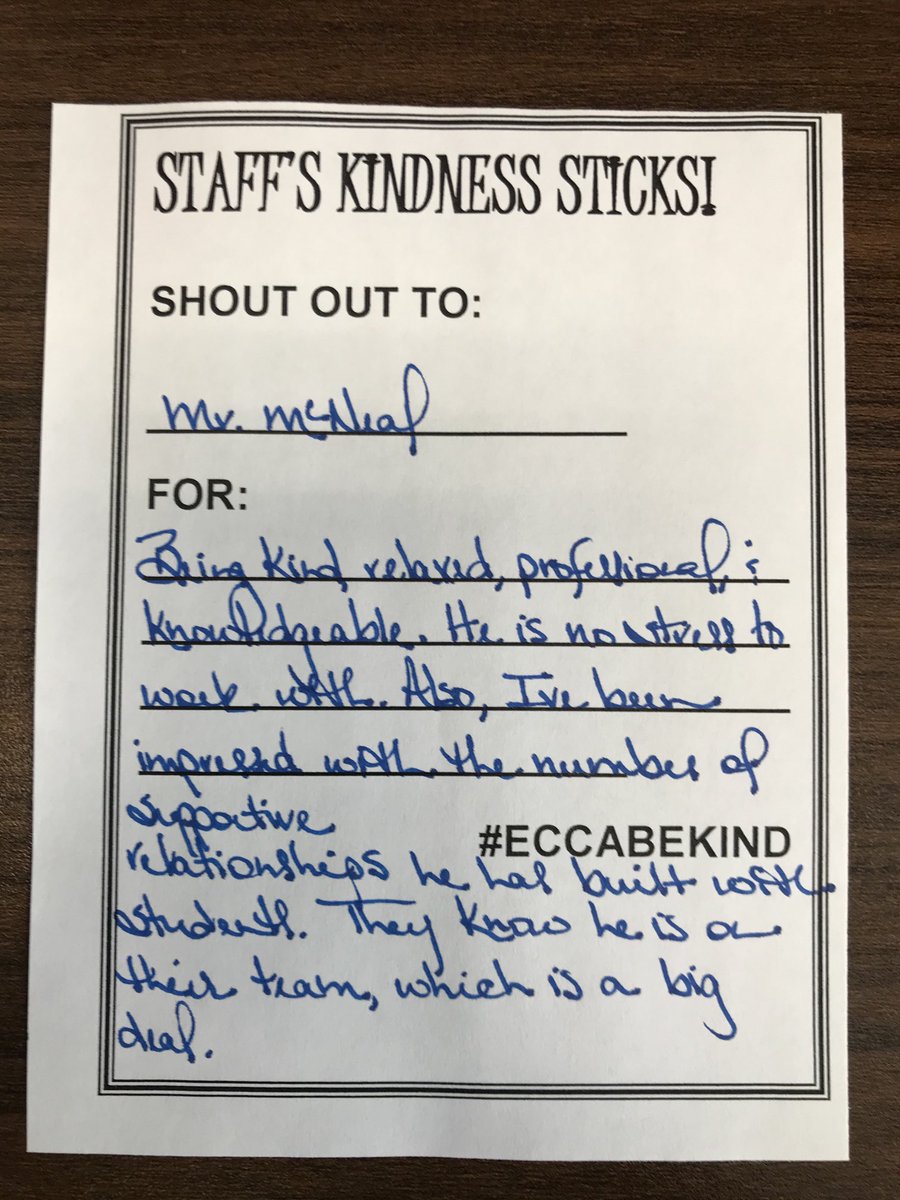 STAFF'S KINDNESS STICKS!
SHOUT OUT TO:
Mr. McNeal
FOR:
Being kind, relaxed, professional, &
knowledgeable. He is no stress to
work with. Also, I've been
impressed with the number of
supportive
#ECCABEKIND
relationships he has built with
students. They know he is on
their team, which is a big
deal.